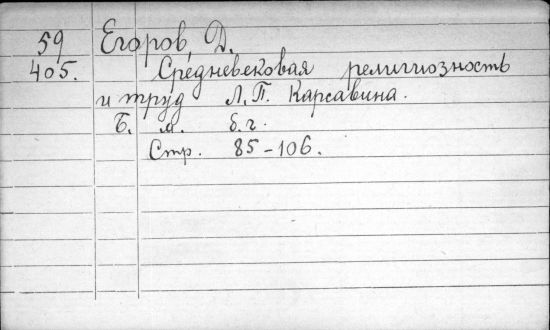 59 Егоров, Д.
405. Средневековая религиозность
и труд Л. П. Карсавина.
Б. м. б. г.
Стр. 85-106.